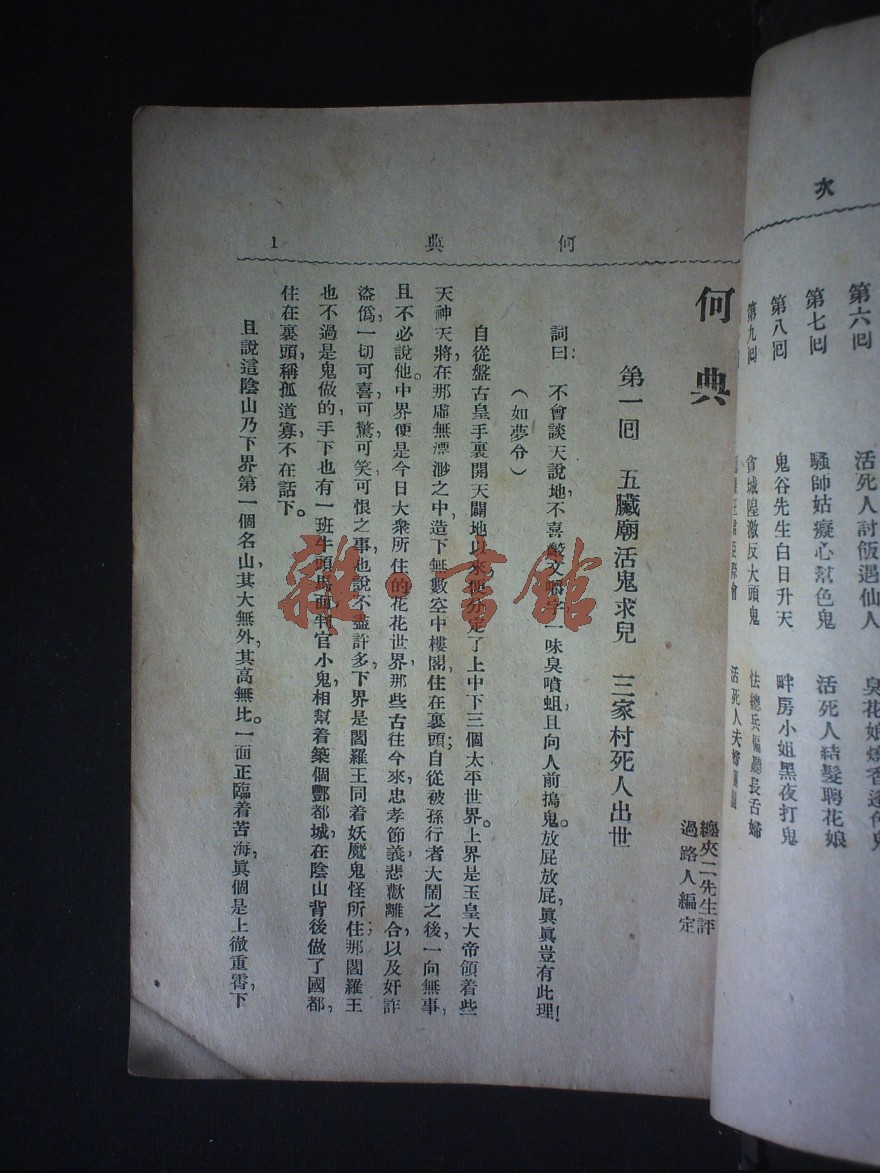 次
第六回 活死人討飯遇仙人
第七回 騷師姑癡心幫色鬼 活死人結髮聘花娘
第八回 鬼谷先生白日升天 畔房小姐黑夜打鬼
第九回 貪城隍激反大頭鬼 怯總兵偏聽長舌婦
何 典 1
何典
纏夾二先生評
過路人編定
第一回 五臟廟活鬼求兒 三家村死人出世
詞曰: 不會談天說地,不喜齩文嚼字,一味臭噴蛆,且向人前搗鬼。放屁放屁,眞眞豈有此理!
(如夢令)
自從盤古皇手裏開天闢地以來,便分定了上中下三個太平世界。上界是玉皇大帝領着些
天神天將,在那虛無漂渺之中,造下無數空中樓閣,住在裏頭;自從被孫行者大鬧之後,一向無事,
且不必說他。中界便是今日大衆所住的花花世界,那些古往今來,忠孝節義,悲歡離合,以及奸詐
盜僞,一切可喜可驚可笑可恨之事,也說不盡許多。下界是閻羅王同着妖魔鬼怪所住;那閻羅王
也不過是鬼做的,手下也有一班牛頭馬面判官小鬼,相幫着築個酆都城,在陰山背後做了國都,
住在裏頭,稱孤道寡,不在話下。
且說這陰山乃下界第一個名山,其大無外,其高無比。一面正臨着苦海,眞個是上徹重霄,下
雜·書館